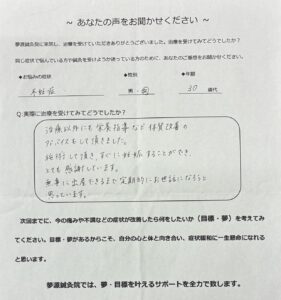 ～ あなたの声をお聞かせください ～
夢源鍼灸院に来院し、治療を受けていただきありがとうございました。治療を受けてみてどうでしたか？
同じ症状で悩んでいる方や鍼灸を受けようか迷っている方のために、あなたのご感想をお聞かせください。
◆お悩みの症状 ◆性別 ◆年齢
不妊症 男・女 30 歳代
Q:実際に治療を受けてみてどうでしたか？
治療以外にも栄養指導など体質改善の
アドバイスをして頂きました。
施術して頂き、すぐに妊娠することができ、
とても感謝しています。
無事に出産できるまで定期的にお世話になろうと
思っています。
次回までに、今の痛みや不調などの症状が改善したら何をしたいか（目標・夢）を考えてみ
てください。目標・夢があるからこそ、自分の心と体と向き合い、症状緩和に一生懸命になれる
と思います。
夢源鍼灸院では、夢・目標を叶えるサポートを全力で致します。